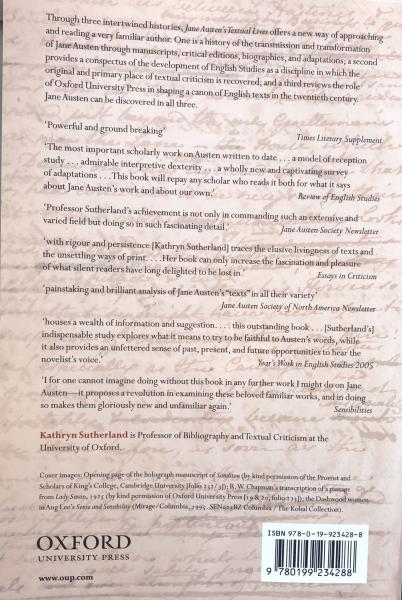 Through three intertwined histories, Jane Austen's Textual Lives offers a new way of approaching
and reading a very familiar author. One is a history of the transmission and transformation
of Jane Austen through manuscripts, critical editions, biographies, and adaptations; a second
provides a conspectus of the development of English Studies as a discipline in which the
original and primary place of textual criticism is recovered; and a third reviews the role
of Oxford University Press in shaping a canon of English texts in the twentieth century.
Jane Austen can be discovered in all three.
'Powerful and ground breaking'
Times Literary Supplement
'The most important scholarly work on Austen written to date . . . a model of reception
study . . . admirable interpretive dexterity . . . a wholly new and captivating survey
of adaptations . . . This book will repay any scholar who reads it both for what it says
about Jane Austen's work and about our own.'
Review of English Studies
'Professor Sutherland's achievement is not only in commanding such an extensive and
varied field but doing so in such fascinating detail.'
Jane Austen Society Newsletter
'with rigour and persistence [Kathryn Sutherland] traces the elusive livingness of texts and
the unsettling ways of print. . . . Her book can only increase the fascination and pleasure
of what silent readers have long delighted to be lost in.'
Essays in Criticism
'painstaking and brilliant analysis of Jane Austen's "texts" in all their variety'
Jane Austen Society of North America Newsletter
'houses a wealth of information and suggestion. . . . this outstanding book . . . [Sutherland's]
indispensable study explores what it means to try to be faithful to Austen's words, while
it also provides an unfettered sense of past, present, and future opportunities to hear the
novelist's voice.'
Year's Work in English Studies 2005
'I for one cannot imagine doing without this book in any further work I might do on Jane
Austen—it proposes a revolution in examining these beloved familiar works, and in doing
so makes them gloriously new and unfamiliar again.'
Sensibilities
Kathryn Sutherland is Professor of Bibliography and Textual Criticism at the
University of Oxford.
Cover images: Opening page of the holograph manuscript of Sanditon (by kind permission of the Provost and
Scholars of King's College, Cambridge University [folio 232/3]); R. W. Chapman's transcription of a passage
from Lady Susan, 1925 (by kind permission of Oxford University Press [19 & 20, folio 271]); the Dashwood women
in Ang Lee's Sense and Sensibility (Mirage / Columbia, 1995. Columbia / The Kobal Collection).
OXFORD
UNIVERSITY PRESS
www.oup.com
ISBN 978-0-19-923428-8
9 780199 234288